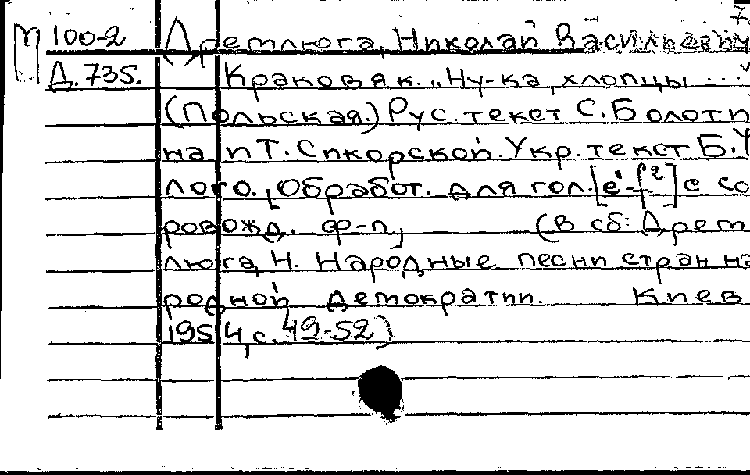 7
М 100-2 Дремлюга, Николай Васильевич
Д.735. Краковяк. „Ну-ка, хлопцы ..."
(Польская.) Рус. текст С. Болоти
на и Т. Сикорской. Укр. текст Б. У
лого. [Обработ. для гол. [e'-f²] с со
ровожд. ф-п] (В сб: Дрем
люга, Н. Народные песни стран на
родной демократии. Киев
1954, с. 49-52)